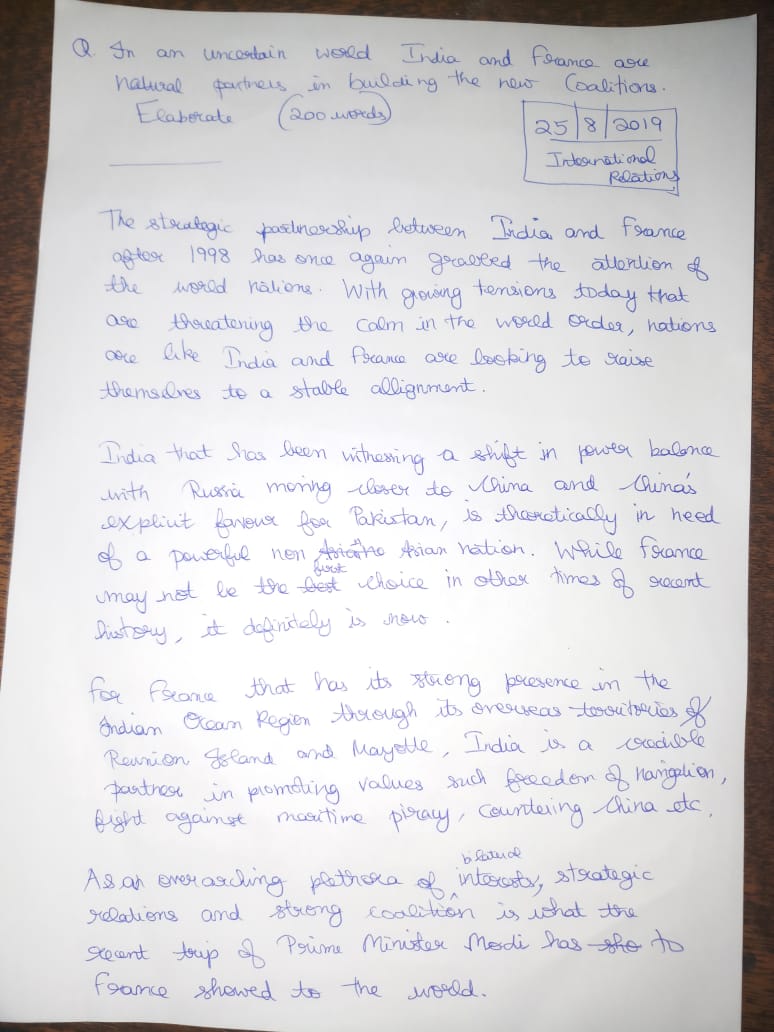 Q. In an uncertain world India and France are
natural partners in building the new Coalitions.
Elaborate (200 words)
25/8/2019
International
Relations
The strategic partnership between India and France
after 1998 has once again grabbed the attention of
the world nations. With growing tensions today that
are threatening the calm in the world order, nations
are like India and France are looking to raise
themselves to a stable allignment.
India that has been witnessing a shift in power balance
with Russia moving closer to China and China's
explicit favour for Pakistan, is theoratically in need
of a powerful non Asian nation. While France
may not be the first choice in other times of recent
history, it definitely is now.
For France that has its strong presence in the
Indian Ocean Region through its overseas territories of
Reunion Island and Mayotte, India is a credible
partner in promoting values such freedom of navigation,
fight against maritime piracy, countering China etc.
As an overarching plethora of bilateral interests, strategic
relations and strong coalition is what the
recent trip of Prime Minister Modi has to
France showed to the world.